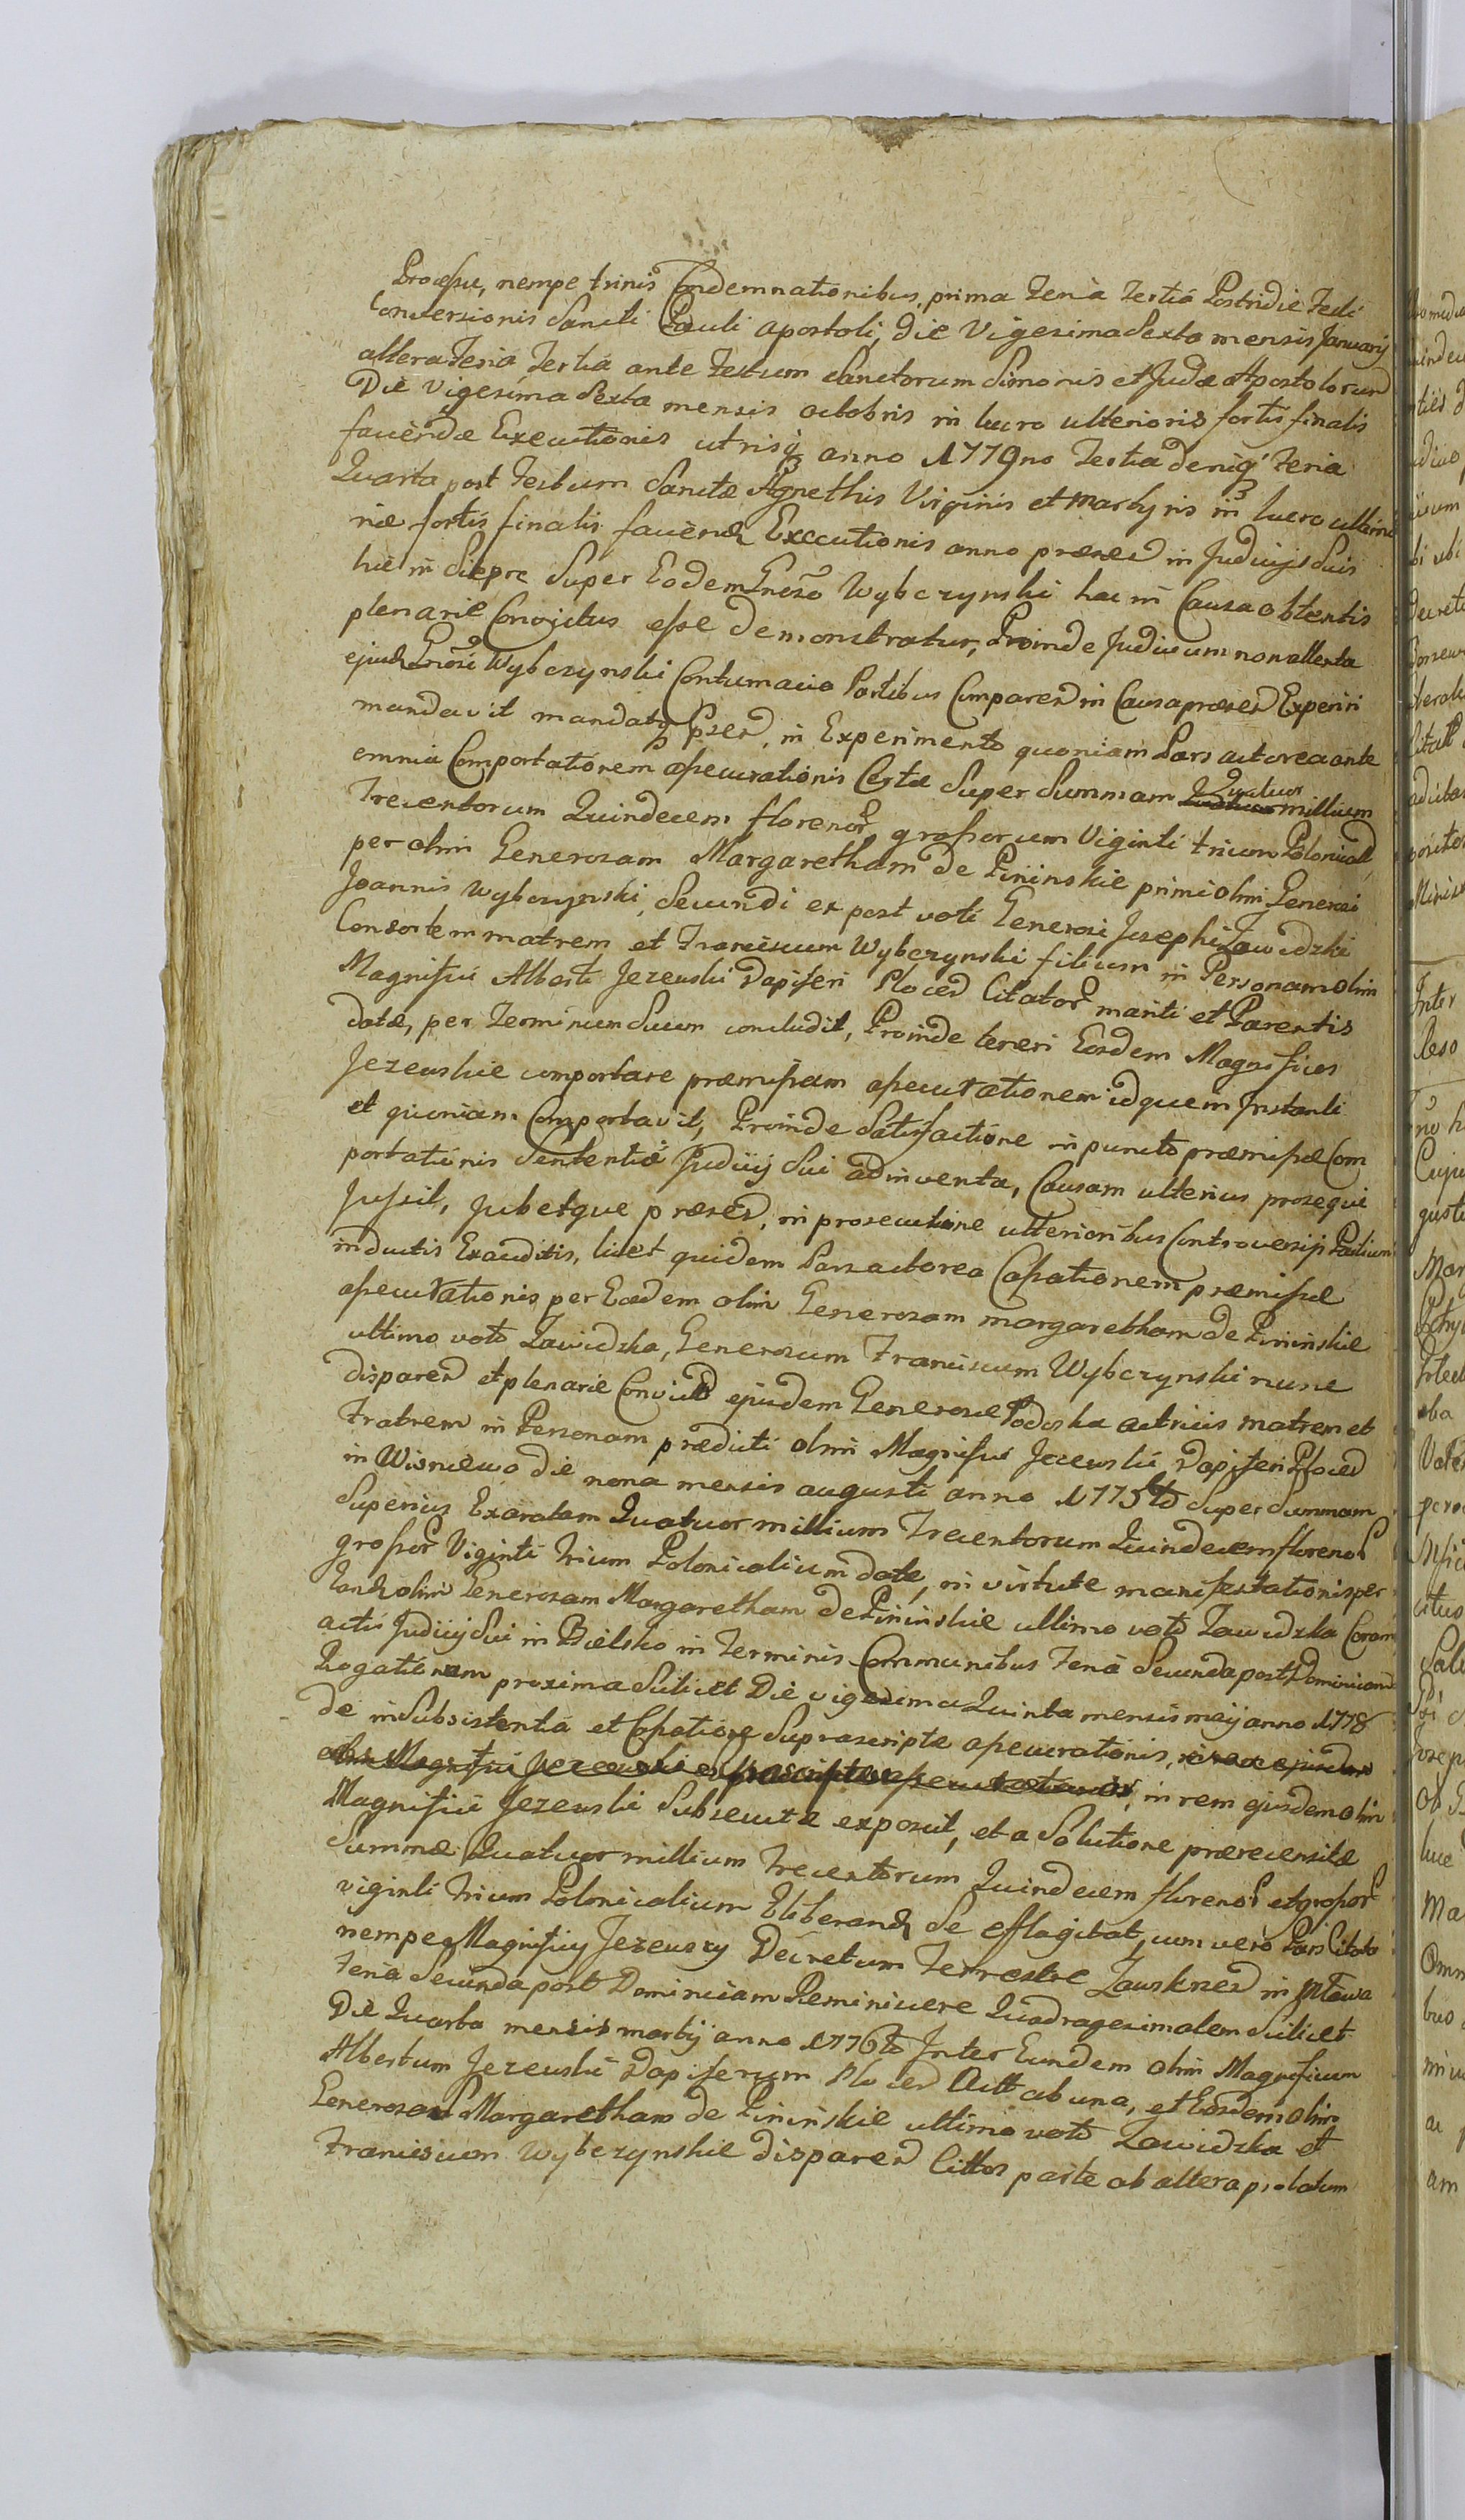 Processu, nempe trinis Condemnationibus, prima Feria Tertia Postridie Festi
Conversionis Sancti Pauli Apostoli, Die Vigesima Sexta mensis Januarij
altera Feria Tertia ante Festum Sanctorum Simonis et Judæ Apostolorum
Die Vigesima Sexta mensis octobris in lucro ulterioris fortis finalis
faciendæ Executionis utrisq anno 1779no Tertia deniq Feria
Quarta post Festum Sanctæ Agnethis Virginis et Martyris in lucro ulterio
riæ fortis finalis faciend Executionis anno præsed in Judicijs Suis
hic in Sierpc Super Eodem Gnoso Wybczynski hac in Causa obtentis
plenarie Convictus esse demonstratur, Proinde Judicium non attenta
ejusd Gnosi Wybczynski Contumacia Partibus Compared in Causa præsed Experiri
mandavit mandatq Præsed, in Experimento quoniam Pars actorea ante
omnia Comportationem assecurationis Certæ Super Summam Quatuor millium
Trecentorum Quindecem florenor grossorum Viginti trium Polonicald
per olim Generosam Margaretham de Pininskie primi olim Generosi
Joannis Wybczynski, Secundi ex post voti Generosi Josephi Zawidzki
Consortem matrem et Franciscum Wybczynski filium in Personam olim
Magnifici Alberti Jezewski Dapiferi Ploced Citator mariti et Parentis
datæ, per Terminum Suum concludit, Proinde teneri Eosdem Magnificos
Jezewskie comportare præmissam assecurationem idquem Instanti
et quoniam Comportavit, Proinde Satisfactione in puncto præmissæ Com
portationis Sententiæ Judicij Sui adinventa, Causam ulterius prosequi
Jussit, Jubetque præsed, in prosecutione ulterioribus Controversijs Partium
inductis Exauditis, licet quidem Pars actorea Cassationem præmissæ
assecurationis per Eadem olim Generosam Margaretham de Pininskie
ultimo voto Zawidzka, Generosum Franciscum Wybczynski nunc
dispared et plenarie Convictd ejusdem Generosæ Podoska actricis matrem et
Fratrem in Personam prædicti olim Magnifici Jezewski Dapiferi Ploced
in Wisniewo die nona mensis augusti anno 1775to Super Summam
Superius Exaratam Quatuor millium Trecentorum Quindecem florenor
grossor Viginti trium Polonicalium datæ, in virtute manifestationis per
Eand olim Generosam Margaretham de Pininskie ultimo voto Zawidzka Coram
actis Judicij Sui in Bielsko in Terminis Communibus Feria Secunda post Dominicam
Rogationum proxima Scilicet Die vigesima Quinta mensis maij anno 1778
de insubsistentia et Cassatione Suprascriptæ assecurationis,
in rem ejusdem olim
Magnifici Jezewski Subsecutæ exposuit, et a Solutione præcensitæ
Summæ Quatuor millium Trecentorum Quindecem florenor et grossor
viginti trium Polonicalium Eliberand Se efflagitat, cum vero Pars Citata
nempe Magnificy Jezewscy Decretum Terrestre Zawskned in Mława
Feria Secunda post Dominicam Reminiscere Quadragesimalem Scilicet
Die Quarta mensis martij anno 1776to Inter Eundem olim Magnificum
Albertum Jezewski Dapiferum Ploced Actt ab una, et Eosdem olim
Generosam Margaretham de Pininskie ultimo voto Zawidzka et
Franciscum Wybczynskie dispared Cittos parte ab altera prolatum